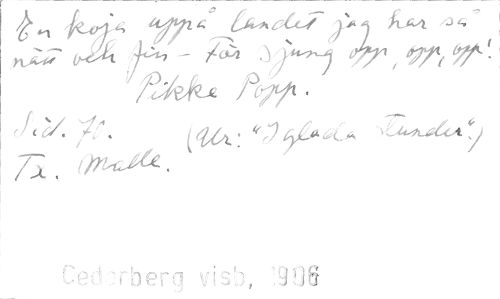 En koja uppå landet jag har så
nätt och fin – För sjung opp, opp, opp!
Pikke Popp.
Sid. 70. (Ur: "I glada stunder".)
Tx. Malle.
Cederberg visb, 1906